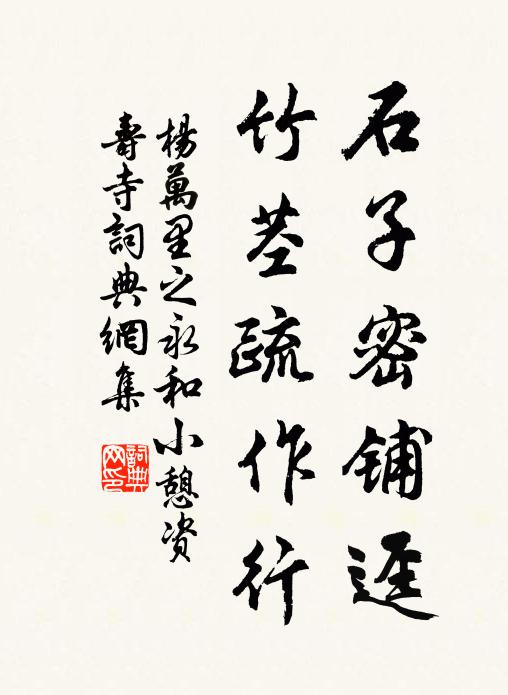 石子密鋪逕
竹莖疏作行
楊萬里之永和小憩資
壽寺詞典網集
詞典
网印